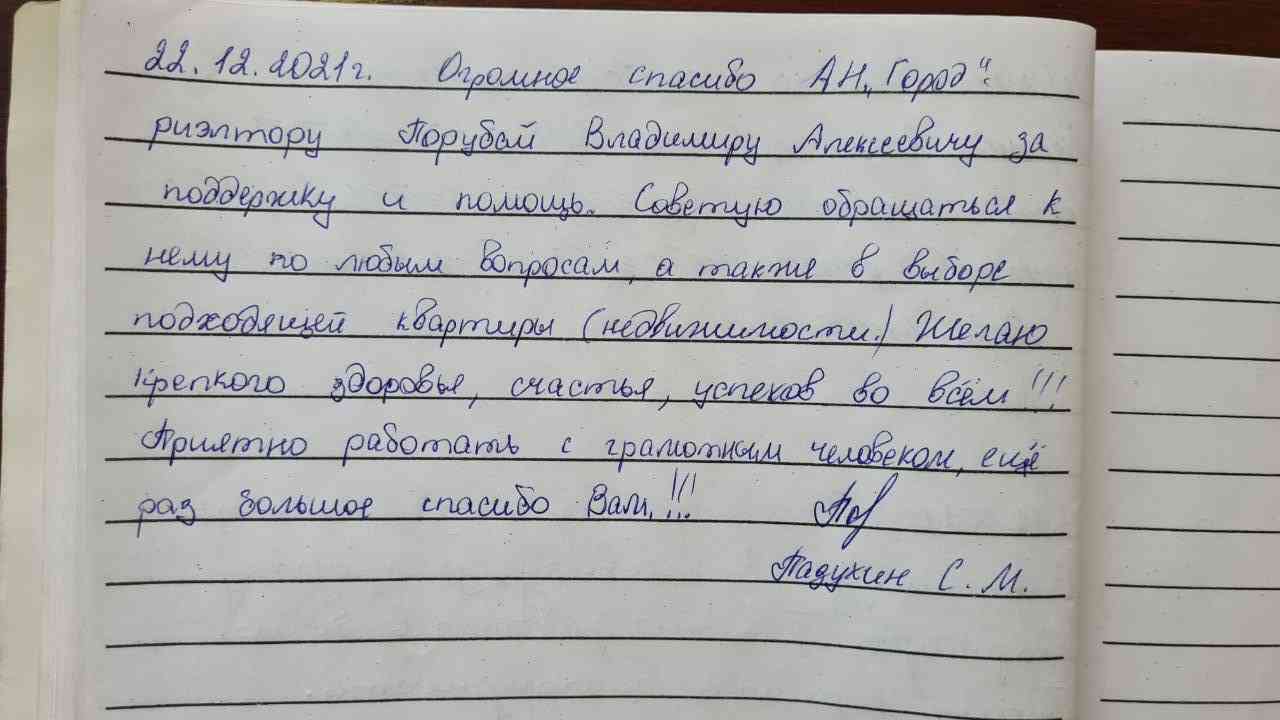 22.12.2021г. Огромное спасибо АН „Город":
риэлтору Порубай Владимиру Алексеевичу за
поддержку и помощь. Советую обращаться к
нему по любым вопросам, а также в выборе
подходящей квартиры (недвижимости.) Желаю
крепкого здоровья, счастья, успехов во всём!!!
Приятно работать с грамотным человеком, ещё
раз большое спасибо Вам,!!!
Падухин С. М.